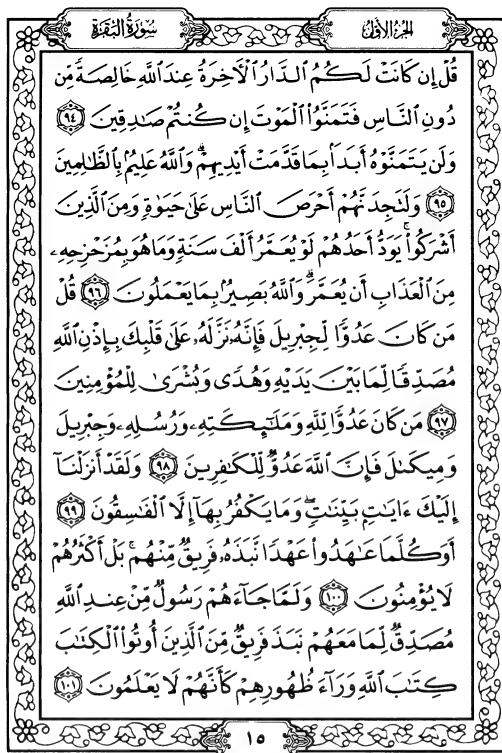 سُورَةُ البَقَرَةِ
الجُزءُ الأوَّلُ
قُلْ إِن كَانَتْ لَكُمُ الدَّارُ الْآخِرَةُ عِندَ اللَّهِ خَالِصَةً مِّن
دُونِ النَّاسِ فَتَمَنَّوُا الْمَوْتَ إِن كُنتُمْ صَادِقِينَ ٩٤
وَلَن يَتَمَنَّوْهُ أَبَدًا بِمَا قَدَّمَتْ أَيْدِيهِمْ ۗ وَاللَّهُ عَلِيمٌ بِالظَّالِمِينَ
٩٥ وَلَتَجِدَنَّهُمْ أَحْرَصَ النَّاسِ عَلَىٰ حَيَوٰةٍ وَمِنَ الَّذِينَ
أَشْرَكُوا ۚ يَوَدُّ أَحَدُهُمْ لَوْ يُعَمَّرُ أَلْفَ سَنَةٍ وَمَا هُوَ بِمُزَحْزِحِهِۦ
مِنَ الْعَذَابِ أَن يُعَمَّرَ ۗ وَاللَّهُ بَصِيرٌ بِمَا يَعْمَلُونَ ٩٦ قُلْ
مَن كَانَ عَدُوًّا لِّجِبْرِيلَ فَإِنَّهُۥ نَزَّلَهُۥ عَلَىٰ قَلْبِكَ بِإِذْنِ اللَّهِ
مُصَدِّقًا لِّمَا بَيْنَ يَدَيْهِ وَهُدًى وَبُشْرَىٰ لِلْمُؤْمِنِينَ
٩٧ مَن كَانَ عَدُوًّا لِّلَّهِ وَمَلَٰٓئِكَتِهِۦ وَرُسُلِهِۦ وَجِبْرِيلَ
وَمِيكَىٰلَ فَإِنَّ اللَّهَ عَدُوٌّ لِّلْكَٰفِرِينَ ٩٨ وَلَقَدْ أَنزَلْنَآ
إِلَيْكَ ءَايَٰتٍۭ بَيِّنَٰتٍ ۖ وَمَا يَكْفُرُ بِهَآ إِلَّا الْفَٰسِقُونَ ٩٩
أَوَكُلَّمَا عَٰهَدُوا عَهْدًا نَّبَذَهُۥ فَرِيقٌ مِّنْهُم ۚ بَلْ أَكْثَرُهُمْ
لَا يُؤْمِنُونَ ١٠٠ وَلَمَّا جَآءَهُمْ رَسُولٌ مِّنْ عِندِ اللَّهِ
مُصَدِّقٌ لِّمَا مَعَهُمْ نَبَذَ فَرِيقٌ مِّنَ الَّذِينَ أُوتُوا الْكِتَٰبَ
كِتَٰبَ اللَّهِ وَرَآءَ ظُهُورِهِمْ كَأَنَّهُمْ لَا يَعْلَمُونَ ١٠١
١٥